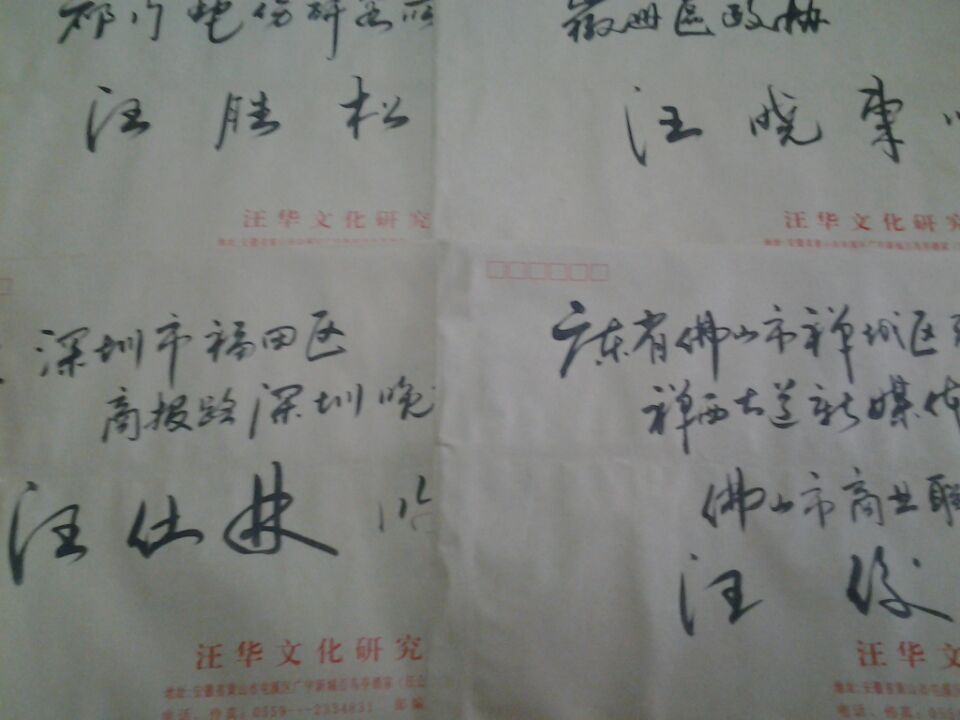 祁门电伤研究所
汪胜松
汪华文化研究
徽州区政协
汪晓东
汪华文化研究
深圳市福田区
商报路深圳晚
汪仕林
汪华文化研究
地址:安徽省黄山市屯溪区广宇新城
电话、传真:0559---2334831 邮编
广东省佛山市禅城区
禅西大道新媒体
佛山市商业联
汪俊
汪华文
地址:安徽省黄山市屯
电话、传真:055